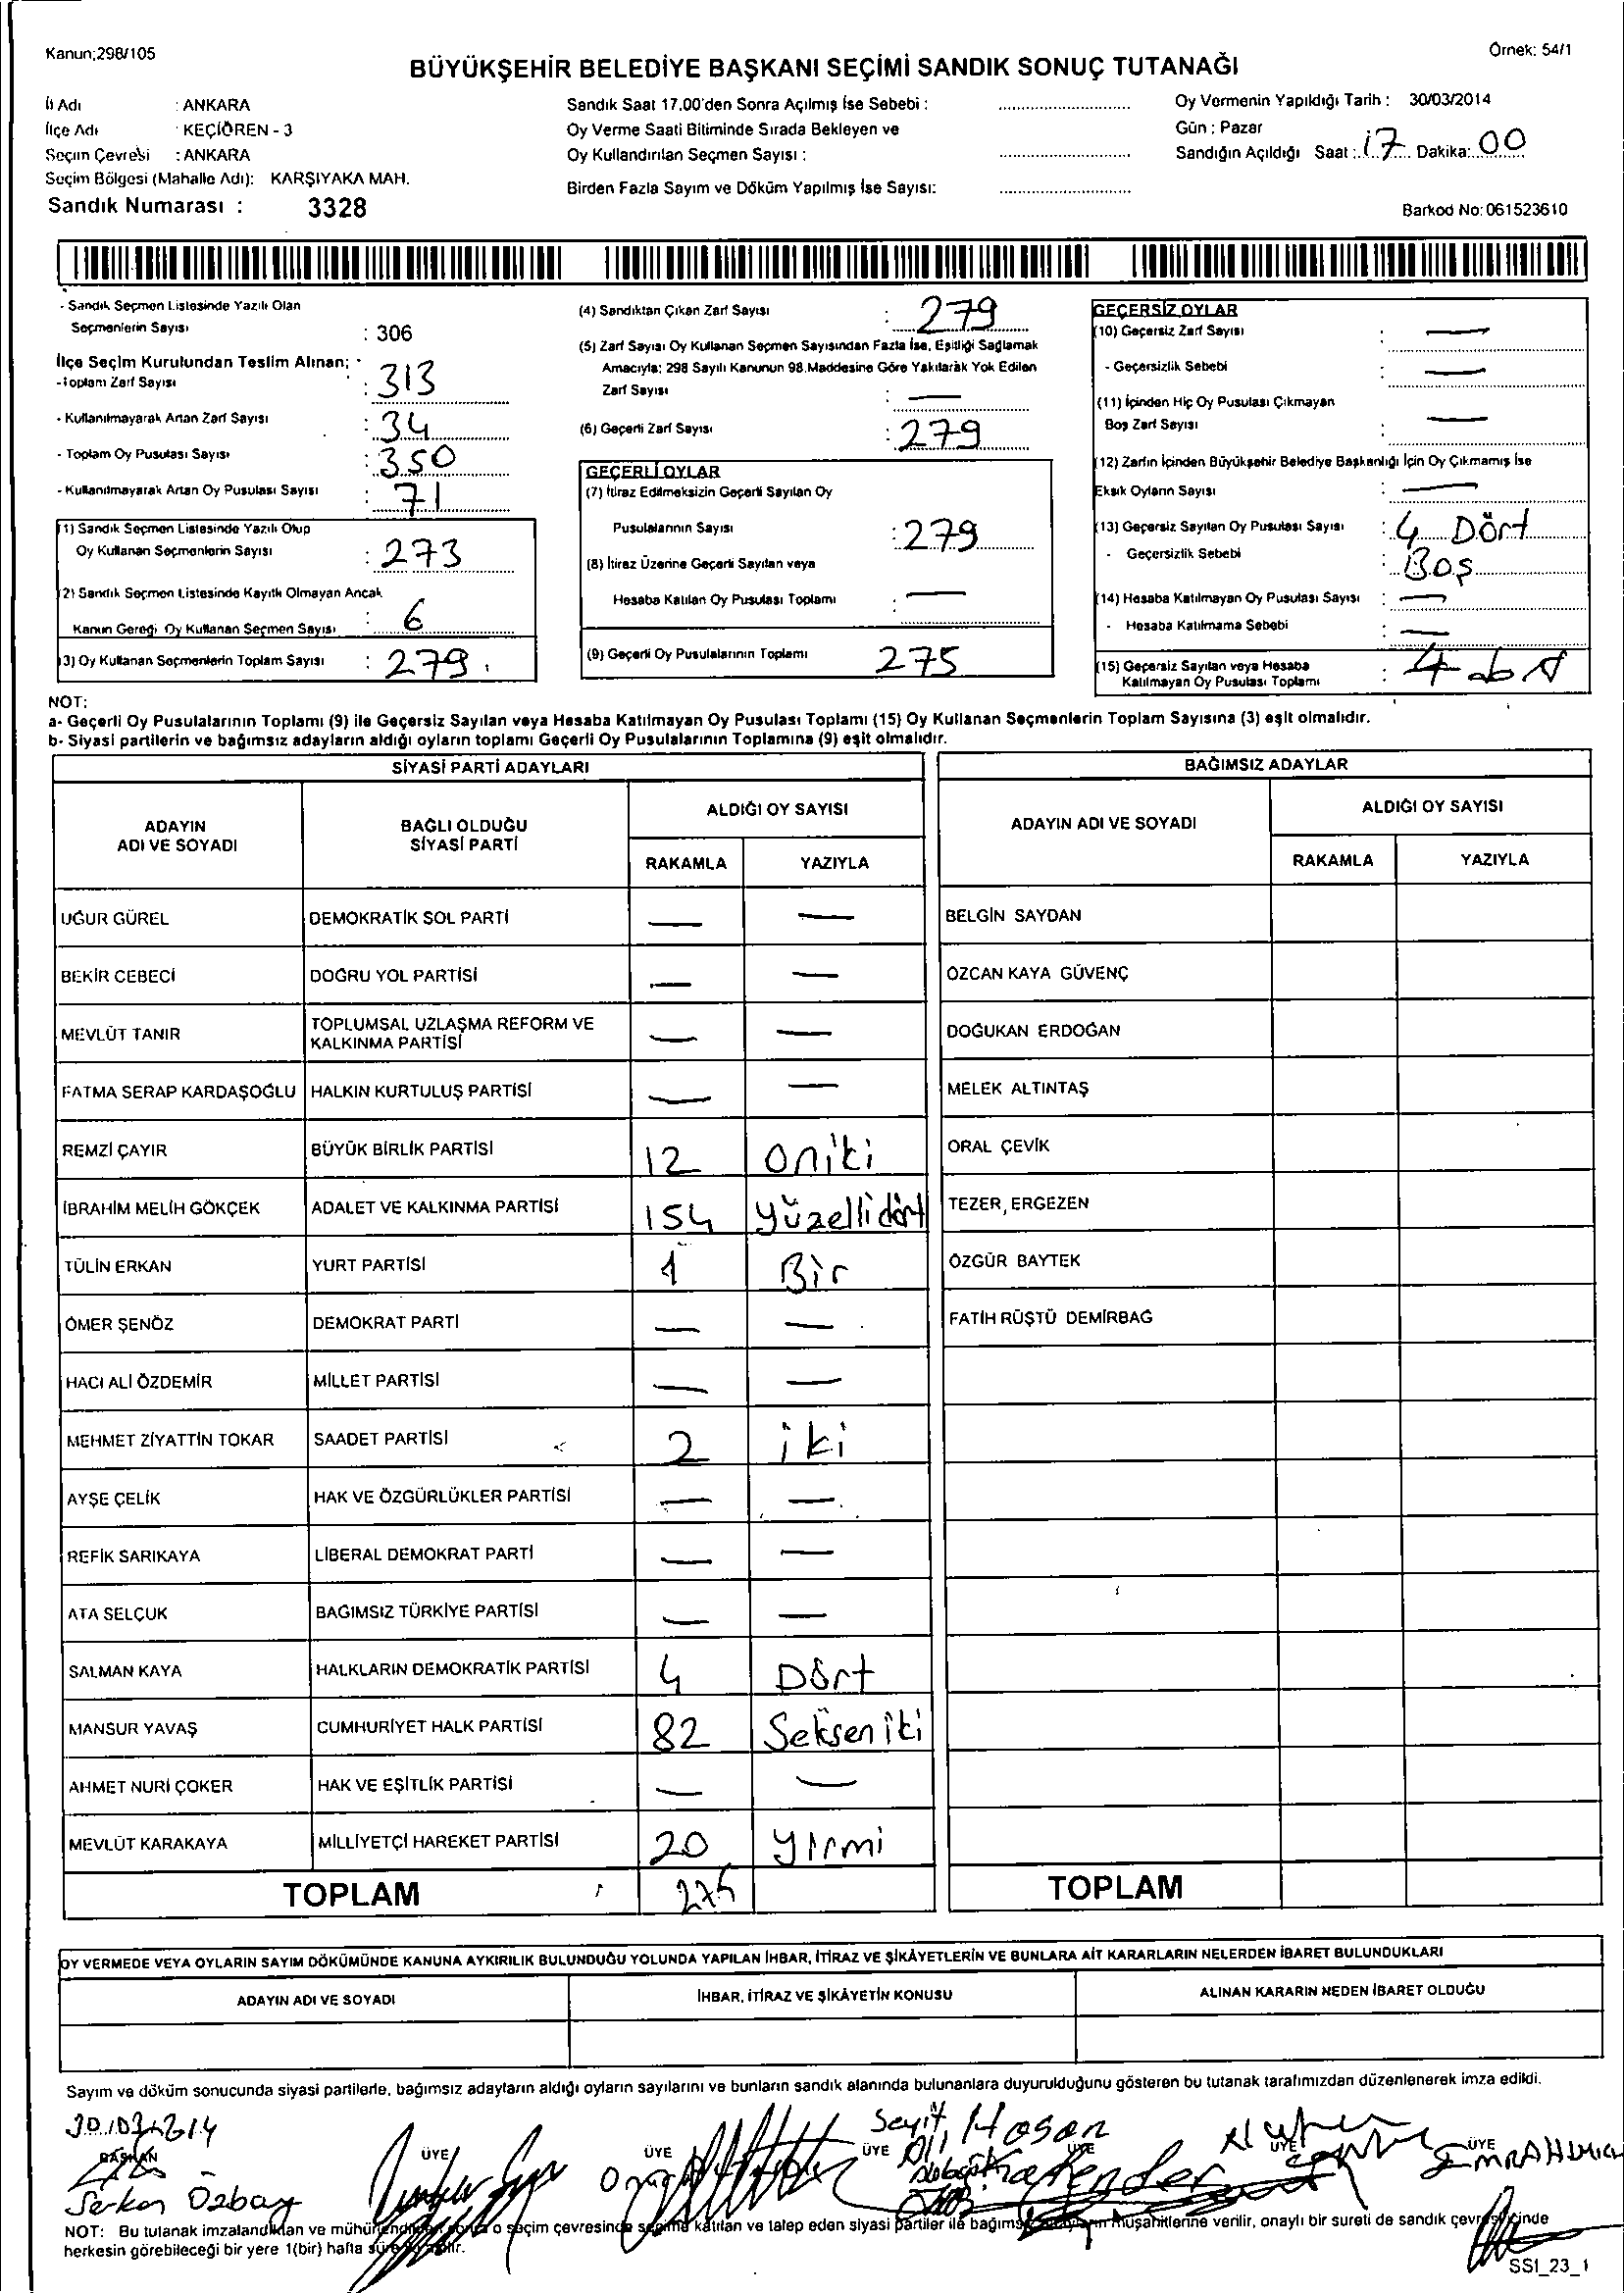 Kanun;298/105
Örnek: 54/1
BÜYÜKŞEHİR BELEDİYE BAŞKANI SEÇİMİ SANDIK SONUÇ TUTANAĞI
İl Adı : ANKARA
İlçe Adı KEÇİÖREN - 3
Seçim Çevresi : ANKARA
Seçim Bölgesi (Mahalle Adı): KARŞIYAKA MAH.
Sandık Numarası : 3328
Sandık Saat 17.00'den Sonra Açılmış İse Sebebi :
Oy Verme Saati Bitiminde Sırada Bekleyen ve
Oy Kullandırılan Seçmen Sayısı :
Birden Fazla Sayım ve Döküm Yapılmış İse Sayısı:
Oy Vermenin Yapıldığı Tarih : 30/03/2014
Gün : Pazar
Sandığın Açıldığı Saat : 17 Dakika: 00
Barkod No: 061523610
- Sandık Seçmen Listesinde Yazılı Olan
Seçmenlerin Sayısı : 306
İlçe Seçim Kurulundan Teslim Alınan;
-Toplam Zarf Sayısı : 313
- Kullanılmayarak Artan Zarf Sayısı : 34
- Toplam Oy Pusulası Sayısı : 350
- Kullanılmayarak Artan Oy Pusulası Sayısı : 71
(1) Sandık Seçmen Listesinde Yazılı Olup
Oy Kullanan Seçmenlerin Sayısı : 273
(2) Sandık Seçmen Listesinde Kayıtlı Olmayan Ancak
Kanun Gereği Oy Kullanan Seçmen Sayısı : 6
(3) Oy Kullanan Seçmenlerin Toplam Sayısı : 279
(4) Sandıktan Çıkan Zarf Sayısı : 279
(5) Zarf Sayısı Oy Kullanan Seçmen Sayısından Fazla İse, Eşitliği Sağlamak
Amacıyla; 298 Sayılı Kanunun 98.Maddesine Göre Yakılarak Yok Edilen
Zarf Sayısı : —
(6) Geçerli Zarf Sayısı : 279
GEÇERLİ OYLAR
(7) İtiraz Edilmeksizin Geçerli Sayılan Oy
Pusulalarının Sayısı : 279
(8) İtiraz Üzerine Geçerli Sayılan veya
Hesaba Katılan Oy Pusulası Toplamı : —
(9) Geçerli Oy Pusulalarının Toplamı 275
GEÇERSİZ OYLAR
(10) Geçersiz Zarf Sayısı : —
- Geçersizlik Sebebi : —
(11) İçinden Hiç Oy Pusulası Çıkmayan
Boş Zarf Sayısı : —
(12) Zarfın İçinden Büyükşehir Belediye Başkanlığı İçin Oy Çıkmamış İse
Eksik Oyların Sayısı : —
(13) Geçersiz Sayılan Oy Pusulası Sayısı : 4 Dört
- Geçersizlik Sebebi : Boş
(14) Hesaba Katılmayan Oy Pusulası Sayısı : —
- Hesaba Katılmama Sebebi : —
(15) Geçersiz Sayılan veya Hesaba
Katılmayan Oy Pusulası Toplamı : 4
NOT:
a- Geçerli Oy Pusulalarının Toplamı (9) ile Geçersiz Sayılan veya Hesaba Katılmayan Oy Pusulası Toplamı (15) Oy Kullanan Seçmenlerin Toplam Sayısına (3) eşit olmalıdır.
b- Siyasi partilerin ve bağımsız adayların aldığı oyların toplamı Geçerli Oy Pusulalarının Toplamına (9) eşit olmalıdır.
SİYASİ PARTİ ADAYLARI
ADAYIN ADI VE SOYADI BAĞLI OLDUĞU SİYASİ PARTİ ALDIĞI OY SAYISI
RAKAMLA YAZIYLA
UĞUR GÜREL DEMOKRATİK SOL PARTİ — —
BEKİR CEBECİ DOĞRU YOL PARTİSİ — —
MEVLÜT TANIR TOPLUMSAL UZLAŞMA REFORM VE KALKINMA PARTİSİ — —
FATMA SERAP KARDAŞOĞLU HALKIN KURTULUŞ PARTİSİ — —
REMZİ ÇAYIR BÜYÜK BİRLİK PARTİSİ 12 Oniki
İBRAHİM MELİH GÖKÇEK ADALET VE KALKINMA PARTİSİ 154 Yüzellidört
TÜLİN ERKAN YURT PARTİSİ 1 Bir
ÖMER ŞENÖZ DEMOKRAT PARTİ — —
HACI ALİ ÖZDEMİR MİLLET PARTİSİ — —
MEHMET ZİYATTİN TOKAR SAADET PARTİSİ 2 iki
AYŞE ÇELİK HAK VE ÖZGÜRLÜKLER PARTİSİ — —
REFİK SARIKAYA LİBERAL DEMOKRAT PARTİ — —
ATA SELÇUK BAĞIMSIZ TÜRKİYE PARTİSİ — —
SALMAN KAYA HALKLARIN DEMOKRATİK PARTİSİ 4 Dört
MANSUR YAVAŞ CUMHURİYET HALK PARTİSİ 82 Seksen iki
AHMET NURİ ÇOKER HAK VE EŞİTLİK PARTİSİ — —
MEVLÜT KARAKAYA MİLLİYETÇİ HAREKET PARTİSİ 20 Yirmi
TOPLAM 275
BAĞIMSIZ ADAYLAR
ADAYIN ADI VE SOYADI ALDIĞI OY SAYISI
RAKAMLA YAZIYLA
BELGİN SAYDAN
ÖZCAN KAYA GÜVENÇ
DOĞUKAN ERDOĞAN
MELEK ALTINTAŞ
ORAL ÇEVİK
TEZER, ERGEZEN
ÖZGÜR BAYTEK
FATİH RÜŞTÜ DEMİRBAĞ
TOPLAM
OY VERMEDE VEYA OYLARIN SAYIM DÖKÜMÜNDE KANUNA AYKIRILIK BULUNDUĞU YOLUNDA YAPILAN İHBAR, İTİRAZ VE ŞİKÂYETLERİN VE BUNLARA AİT KARARLARIN NELERDEN İBARET BULUNDUKLARI
ADAYIN ADI VE SOYADI İHBAR, İTİRAZ VE ŞİKÂYETİN KONUSU ALINAN KARARIN NEDEN İBARET OLDUĞU
Sayım ve döküm sonucunda siyasi partilerle, bağımsız adayların aldığı oyların sayılarını ve bunların sandık alanında bulunanlara duyurulduğunu gösteren bu tutanak tarafımızdan düzenlenerek imza edildi.
BAŞKAN ÜYE ÜYE ÜYE ÜYE ÜYE ÜYE
Serkan Özbay
Seyit Hasan
NOT: Bu tutanak imzalandıktan ve mühürlendikten sonra o seçim çevresinde seçime katılan ve talep eden siyasi partiler ile bağımsız adayların müşahitlerine verilir, onaylı bir sureti de sandık çevresi içinde
herkesin görebileceği bir yere 1(bir) hafta süre ile asılır.
SSI_23_1